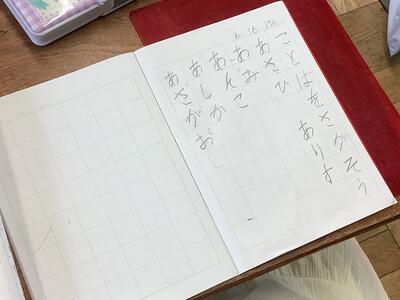 6.16.
ことばをさがそう
ありす
あさひ
あみ
あんこ
あしか
あさがお